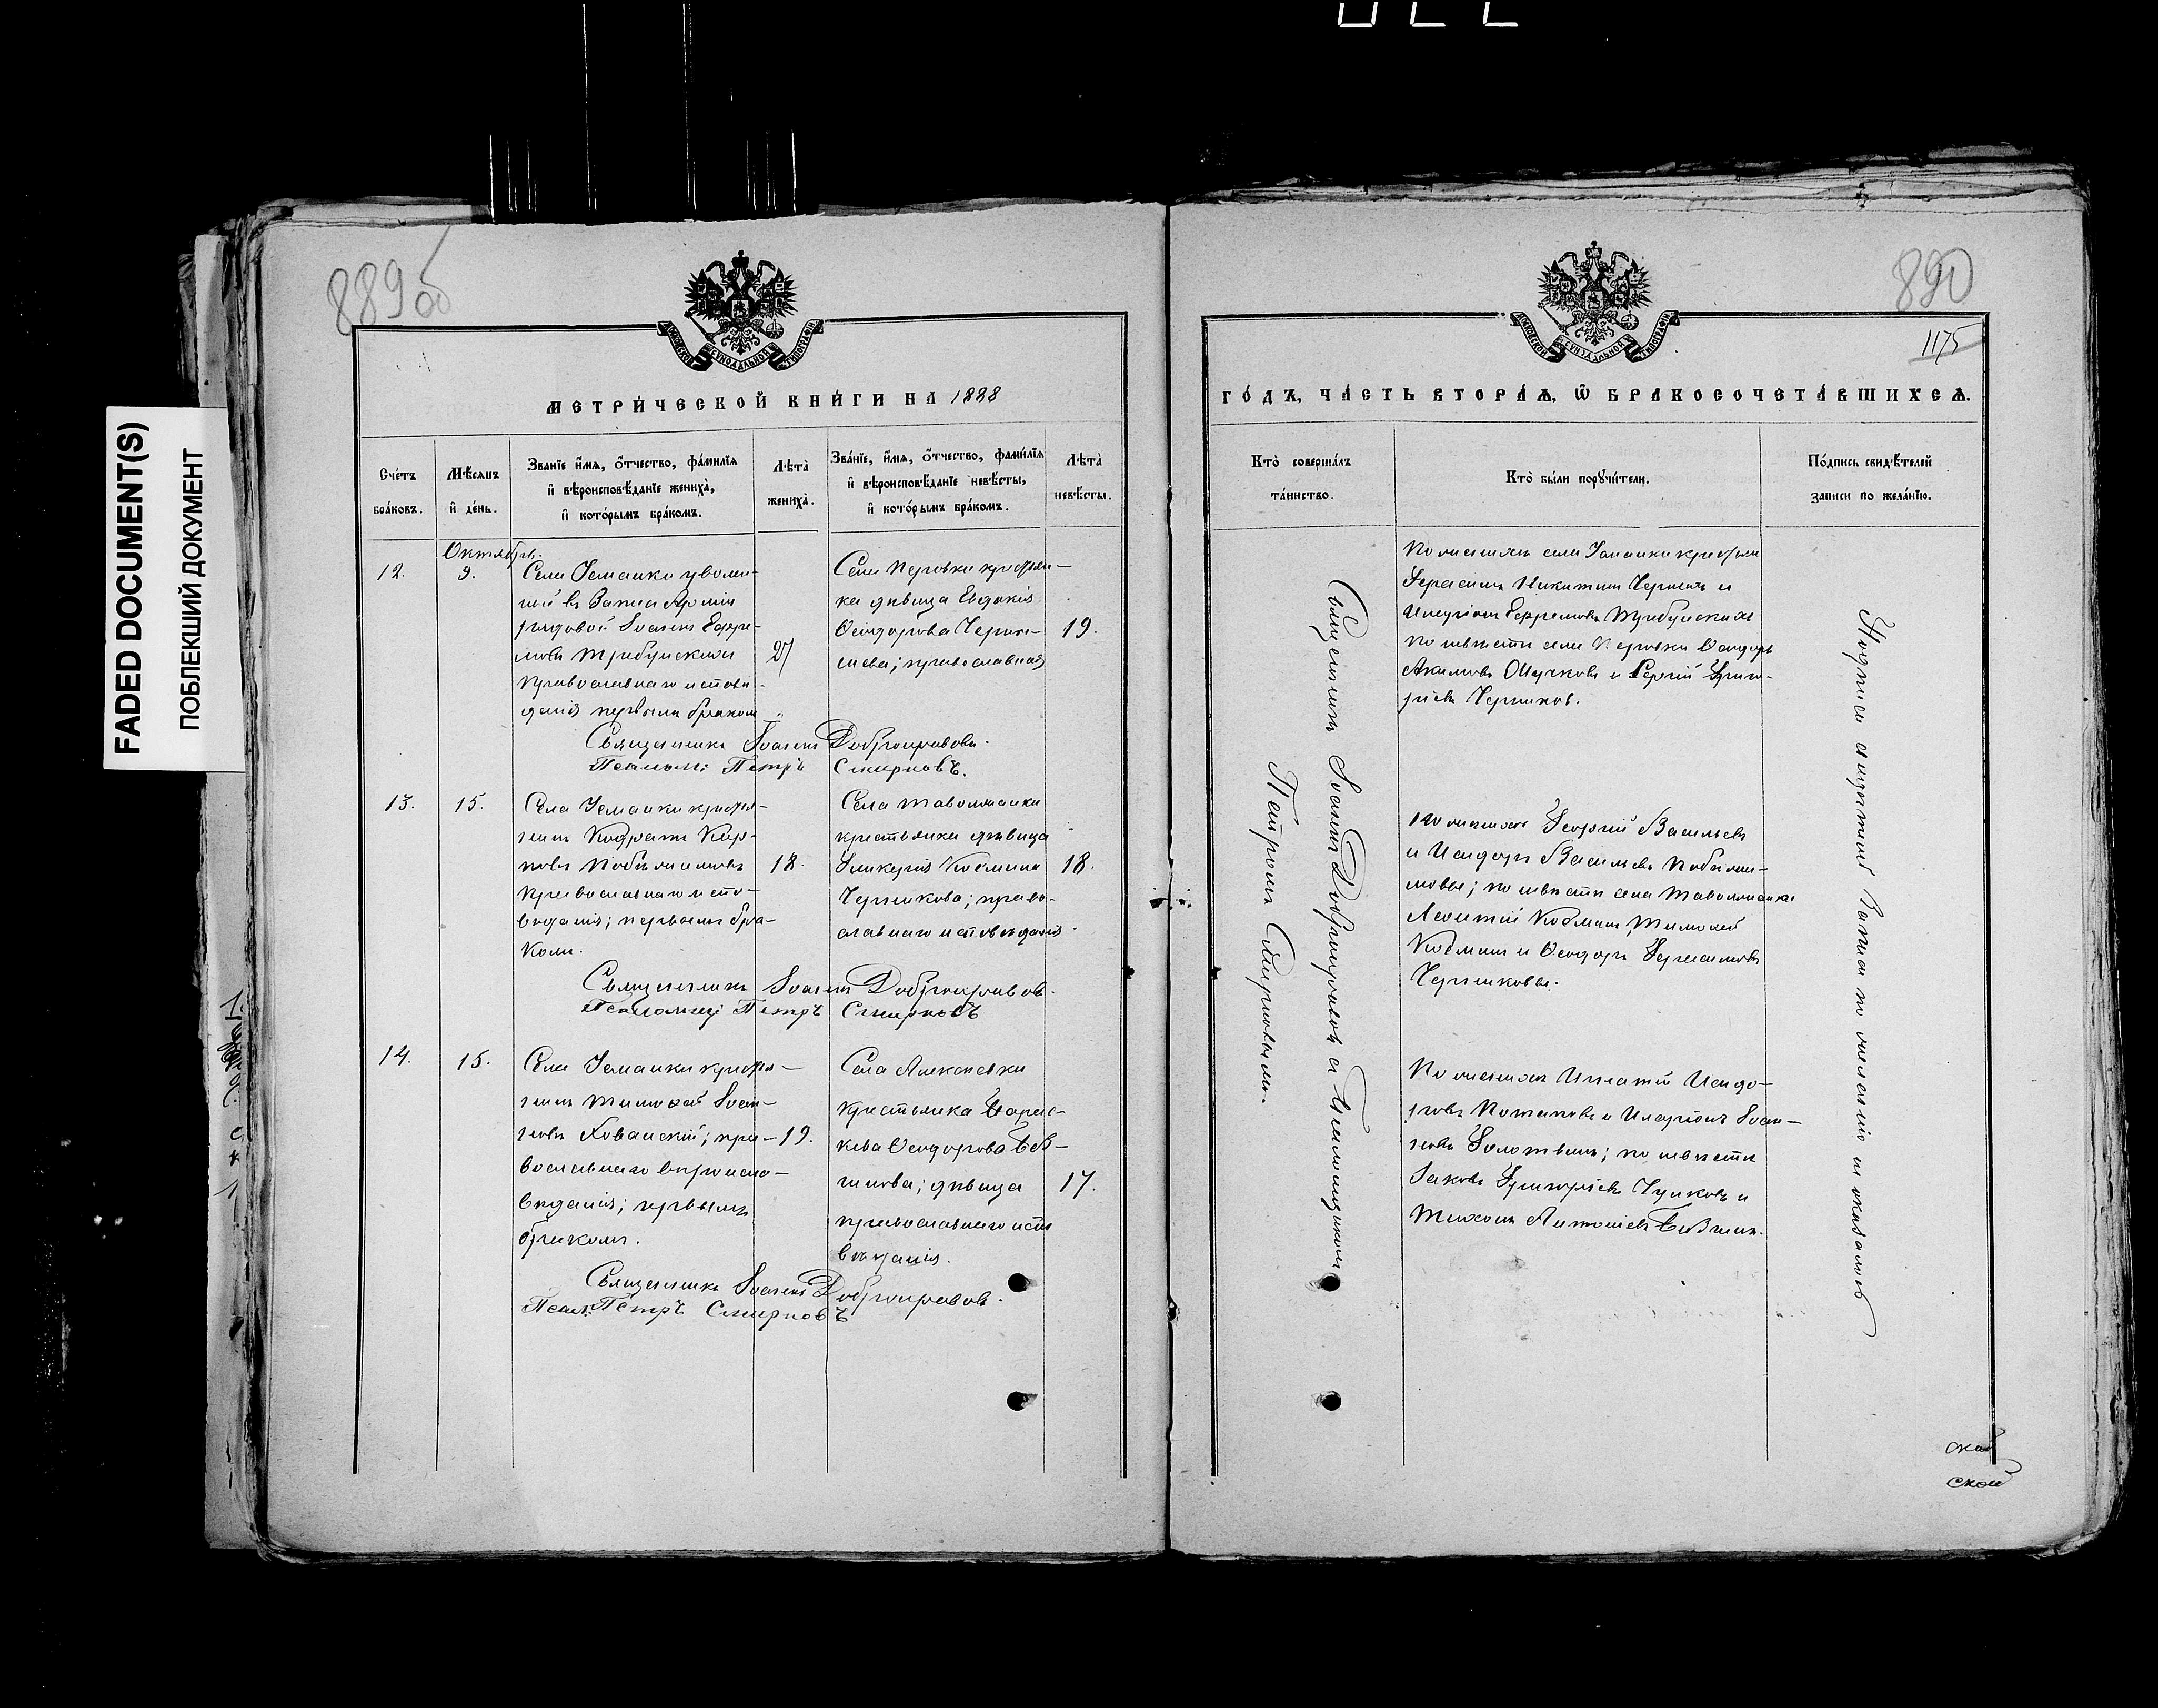 FADED DOCUMENT(S)
ПОБЛЕКШИЙ ДОКУМЕНТ
889об
МОСКОВСКОЙ СУНОДАЛЬНОЙ ТИПОГРАФІИ
МЕТРИ́ЧЕСКОЙ КНИ́ГИ НА 1888
Счéтъ бра́ковъ.
Мѣ́сяцъ и҆ де́нь.
Зва́нїе и҆́мѧ, ѻ҆́тчество, фами́лїѧ
и҆ вѣроисповѣ́данїе жениха̀,
и҆ кото́рымъ бра́комъ.
Лѣ́та̀ жениха̀.
Зва́нїе, и҆́мѧ, ѻ҆́тчество, фами́лїѧ
и҆ вѣроисповѣ́данїе невѣ́сты,
и҆ кото́рымъ бра́комъ.
Лѣ́та̀ невѣ́сты.
Октябрь.
12.
9.
Села Усманки уволен-
ный въ Запас Арміи
рядовой Іоаннъ Ефре-
мовъ Трибунскій
православнаго испове
данія первымъ бракомъ
27
Села Перовки крестьян-
ка девица Евдокія
Ѳеодорова Черни-
кова; православная
19.
Священникъ Іоаннъ Добронравовъ.
Псалом: Петръ Смирновъ.
13.
15.
Села Усманки крестья-
нинъ Кодратъ Кар-
повъ
православнаго испо-
веданія; первымъ бра-
комъ.
18.
Села Таволжанки
крестьянка девица
Гликерія Косьмина
Черникова; право-
славнаго исповеданія.
18.
Священникъ Іоаннъ Добронравовъ.
Псаломщ: Петръ Смирновъ
14.
15.
Села Усманки крестья-
нинъ Тимофей Іоан-
новъ Хованскій; пра-
вославнаго вероиспо-
веданія; первымъ
бракомъ.
19.
Села Алексеевки
крестьянка Парас-
кева Ѳеодорова
девица
православнаго испо
веданія.
17.
Священникъ Іоаннъ Добронравовъ.
Псал: Петръ Смирновъ
890
1175
МОСКОВСКОЙ СУНОДАЛЬНОЙ ТИПОГРАФІИ
ГО́ДЪ, ЧА́СТЬ ВТОРА́Ѧ, Ѽ БРАКОСОЧЕТА́ВШИХСѦ.
Кто̀ соверша́лъ
та́инство.
Кто̀ бы́ли порꙋчи́тели.
По́дпись свидѣ́телей
записи по жела́нїю.
Священникъ Іоаннъ Добронравовъ съ Псаломщикомъ
Петромъ Смирновымъ.
По женихе села Усманки крестьяне
Герасимъ Никитинъ Черновъ и
Иларіонъ Ефремовъ Трибунскіе
по невесте села Перовки Ѳеодоръ
Акимовъ и Сергій Григо-
ріевъ Черниковъ.
По женихе Георгій Васильевъ
и Исидоръ Васильевъ
по невесте села Таволжанки
Леонтій Косминъ, Тимофей
Косминъ и Ѳеодоръ Герасимовъ
Черниковы.
По женихе Игнатій Исидо-
ровъ Потаповъ и Иларіонъ Іоан-
новъ Золотвинъ; по невесте
Іаковъ Григоріевъ Чулковъ и
Тихонъ Антоніевъ
Подписи свидетелей записи по желанію не оказалось
ской